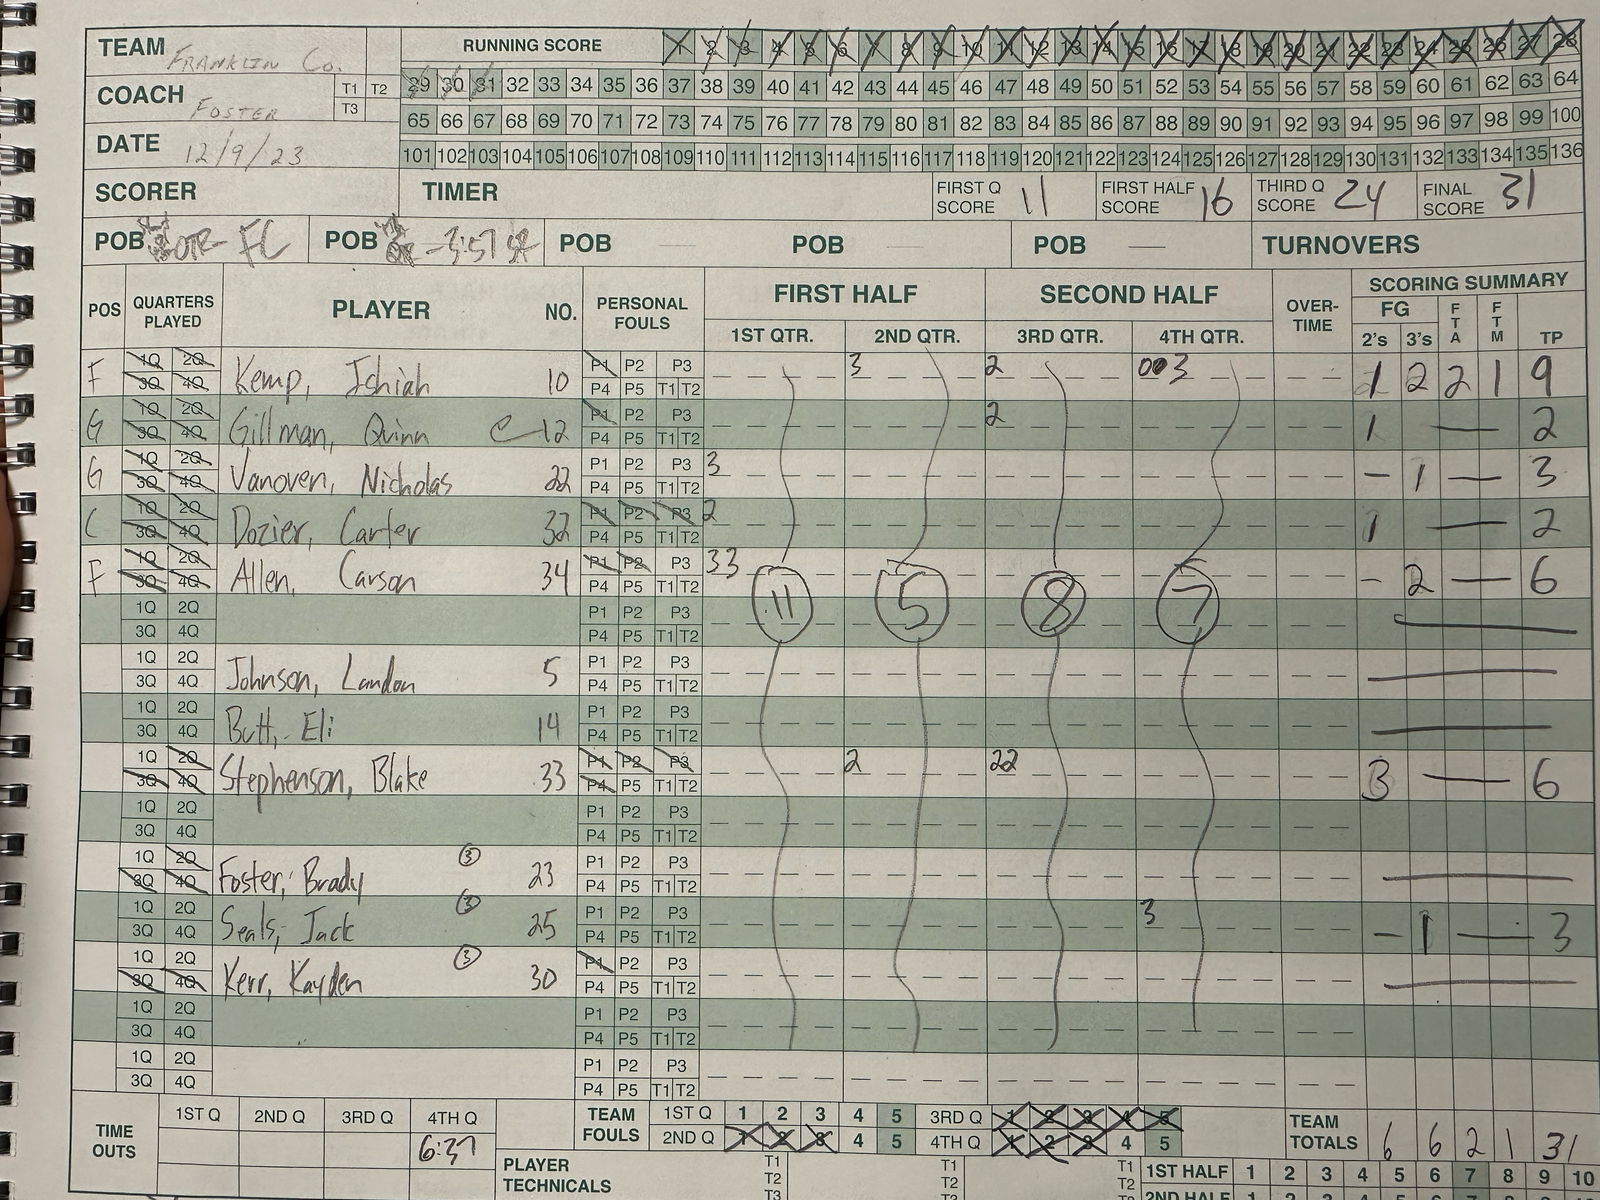 TEAM Franklin Co.
RUNNING SCORE 1 2 3 4 5 6 7 8 9 10 11 12 13 14 15 16 17 18 19 20 21 22 23 24 25 26 27 28
T1 T2 29 30 31 32 33 34 35 36 37 38 39 40 41 42 43 44 45 46 47 48 49 50 51 52 53 54 55 56 57 58 59 60 61 62 63 64
COACH Foster
T3 65 66 67 68 69 70 71 72 73 74 75 76 77 78 79 80 81 82 83 84 85 86 87 88 89 90 91 92 93 94 95 96 97 98 99 100
DATE 12/9/23
101 102 103 104 105 106 107 108 109 110 111 112 113 114 115 116 117 118 119 120 121 122 123 124 125 126 127 128 129 130 131 132 133 134 135 136
SCORER TIMER FIRST Q SCORE 11 FIRST HALF SCORE 16 THIRD Q SCORE 24 FINAL SCORE 31
POB FC POB - 3:57 POB — POB — POB — TURNOVERS
POS QUARTERS PLAYED PLAYER NO. PERSONAL FOULS FIRST HALF SECOND HALF OVER-TIME SCORING SUMMARY
1ST QTR. 2ND QTR. 3RD QTR. 4TH QTR. FG 2's 3's FTA FTM TP
F 1Q 2Q Kemp, Ishiah 10 P1 P2 P3 3 2 003 1 2 2 1 9
3Q 4Q P4 P5 T1 T2
G 1Q 2Q Gillman, Quinn C 12 P1 P2 P3 2 1 — 2
3Q 4Q P4 P5 T1 T2
G 1Q 2Q Vanoven, Nicholas 22 P1 P2 P3 3 - 1 — 3
3Q 4Q P4 P5 T1 T2
C 1Q 2Q Dozier, Carter 32 P1 P2 P3 2 1 — 2
3Q 4Q P4 P5 T1 T2
F 1Q 2Q Allen, Carson 34 P1 P2 P3 33 - 2 — 6
3Q 4Q P4 P5 T1 T2
1Q 2Q P1 P2 P3 11 5 8 7
3Q 4Q P4 P5 T1 T2
1Q 2Q Johnson, Landon 5 P1 P2 P3
3Q 4Q P4 P5 T1 T2
1Q 2Q Butt, Eli 14 P1 P2 P3
3Q 4Q P4 P5 T1 T2
1Q 2Q Stephenson, Blake 33 P1 P2 P3 2 22 3 — 6
3Q 4Q P4 P5 T1 T2
1Q 2Q P1 P2 P3
3Q 4Q P4 P5 T1 T2
1Q 2Q Foster, Brady 3 23 P1 P2 P3
3Q 4Q P4 P5 T1 T2
1Q 2Q Seals, Jack 3 25 P1 P2 P3 3 - 1 — 3
3Q 4Q P4 P5 T1 T2
1Q 2Q Kerr, Kayden 3 30 P1 P2 P3
3Q 4Q P4 P5 T1 T2
1Q 2Q P1 P2 P3
3Q 4Q P4 P5 T1 T2
1Q 2Q P1 P2 P3
3Q 4Q P4 P5 T1 T2
TIME OUTS 1ST Q 2ND Q 3RD Q 4TH Q 6:37
TEAM FOULS 1ST Q 1 2 3 4 5 3RD Q 1 2 3 4 5
2ND Q 1 2 3 4 5 4TH Q 1 2 3 4 5
TEAM TOTALS 6 6 2 1 31
PLAYER TECHNICALS T1 T2 T3 T1 T2 T1 T2
1ST HALF 1 2 3 4 5 6 7 8 9 10
2ND HALF